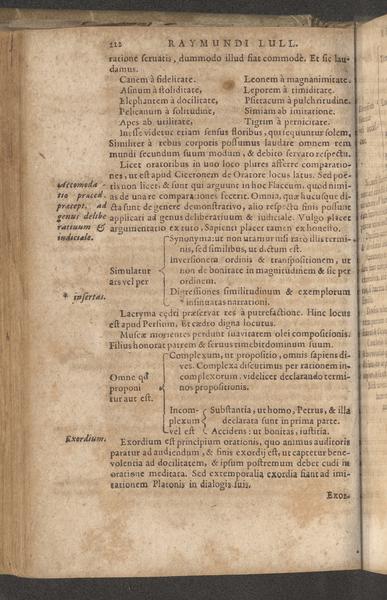 222 RAYMUNDI LULL.
ratione seruatis, dummodo illud fiat commodè. Et sic lau-
damus.
Canem à fidelitate. Leonem à magnanimitate.
Asinum à stoliditate, Leporem à timiditate.
Elephantem à docilitate, Psittacum à pulchritudine.
Pelicanum à solitudine, Simiam ab imitatione.
Apes ab vtilitate, Tigrim à pernicitate.
Inesse videtur etiam sensus floribus, qui sequuntur solem,
Similiter à rebus corporis possumus laudare omnem rem
mundi secundum suum modum, & debito seruato respectu.
Licet oratoribus in vno loco plures afferre comparatio-
nes, vt est apud Ciceronem de Oratore locus latus. Sed poë-
Accomoda- tis non licet, & sunt qui arguunt in hoc Flaccum, quod nimi-
tio præced. as de vna re comparationes fecerit. Omnia, quæ hucusque di-
præcept. ad cta sunt de genere demonstratiuo, alio respectu finis possunt
genus delibe applicari ad genus deliberatiuum & iudiciale. Vulgo placet
ratiuum & argumentatio ex tuto, Sapienti placet tamen ex honesto.
iudiciale.
Synonyma: vt non vtamur nisi raro illis termi-
nis, sed similibus, vt dictum est.
Inversionem ordinis & transpositionem, vt
Simulatur non de bonitate in magnitudinem & sic per
ars vel per ordinem.
Digressiones similitudinum & exemplorum
* insertas. * insinuatas narrationi.
Lacryma cedri præseruat res à putrefactione. Hinc locus
est apud Persium, Et cædro digna locutus.
Muscæ morientes perdunt suauitatem olei compositionis.
Filius honorat patrem & seruus timebit dominum suum.
Complexum, vt propositio, omnis sapiens di-
ves. Complexa discutimus per rationem in-
Omne qd complexorum, videlicet declarando termi-
proponi nos propositionis.
tur aut est.
Incom- Substantia, vt homo, Petrus, & illa
plexum declarata sunt in prima parte.
vel est Accidens: vt bonitas, iustitia.
Exordium. Exordium est principium orationis, quo animus auditoris
paratur ad audiendum, & finis exordij est, vt captetur bene-
volentia ad docilitatem, & ipsum postremum debet cudi in
oratione meditata. Sed extemporalia exordia fiant ad imi-
tationem Platonis in dialogis suis.
EXOR-